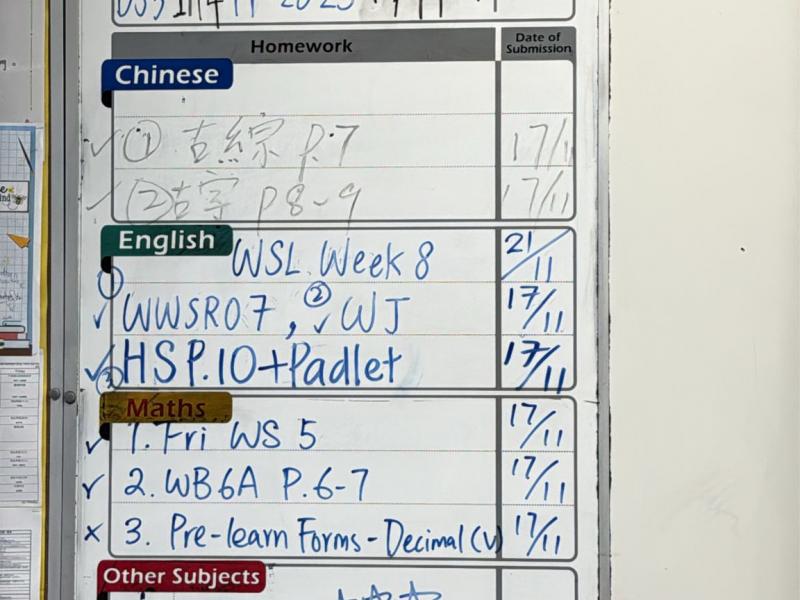 Homework Date of Submission
Chinese
✓ ① 古綜 P.7 17/11
✓ ② 古字 P8-9 17/11
English WSL Week 8 21/11
① ✓ WWSR07, ② ✓ WJ 17/11
✓ ③ HS P.10+Padlet 17/11
Maths
✓ 1. Fri WS 5 17/11
✓ 2. WB6A P.6-7 17/11
× 3. Pre-learn Forms - Decimal (V) 17/11
Other Subjects